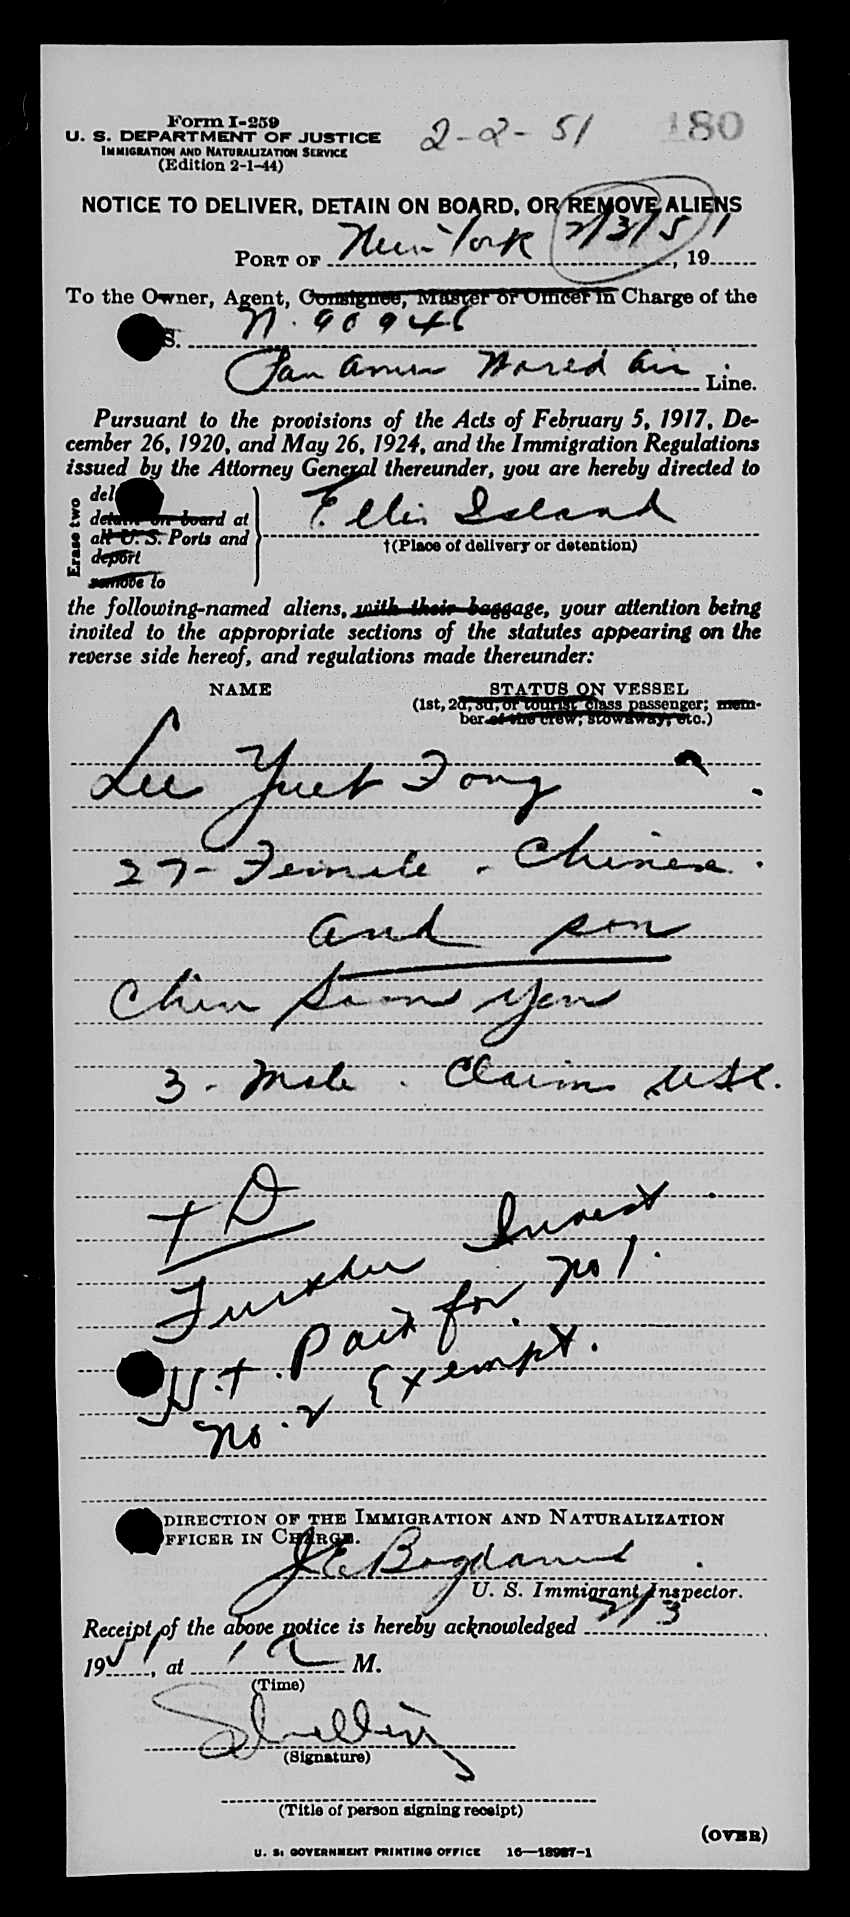 Form I-259
U. S. DEPARTMENT OF JUSTICE
IMMIGRATION AND NATURALIZATION SERVICE
(Edition 2-1-44)
2-2-51
180
NOTICE TO DELIVER, DETAIN ON BOARD, OR REMOVE ALIENS
PORT OF New York 2/3/51, 19
To the Owner, Agent, Consignee, Master or Officer in Charge of the
S. N. 90946
Pan Amer World Air Line.
Pursuant to the provisions of the Acts of February 5, 1917, De-
cember 26, 1920, and May 26, 1924, and the Immigration Regulations
issued by the Attorney General thereunder, you are hereby directed to
Erase two
del
detain on board at
all U. S. Ports and
deport
remove to
Ellis Island
†(Place of delivery or detention)
the following-named aliens, with their baggage, your attention being
invited to the appropriate sections of the statutes appearing on the
reverse side hereof, and regulations made thereunder:
NAME
STATUS ON VESSEL
(1st, 2d, 3d, or tourist class passenger; mem-
ber of the crew; stowaway, etc.)
Lee Yuet Fong
27 - Female - Chinese.
and son
Chin Yen
3 - Male - Claims USC.
TD
Further Invest.
H.T. Paid for No 1.
No. 2 Exempt.
DIRECTION OF THE IMMIGRATION AND NATURALIZATION
FFICER IN CHARGE.
J E
U. S. Immigrant Inspector.
Receipt of the above notice is hereby acknowledged 2/3
1951, at 1 A M.
(Time)
(Signature)
(Title of person signing receipt)
(OVER)
U. S. GOVERNMENT PRINTING OFFICE 16—18987-1